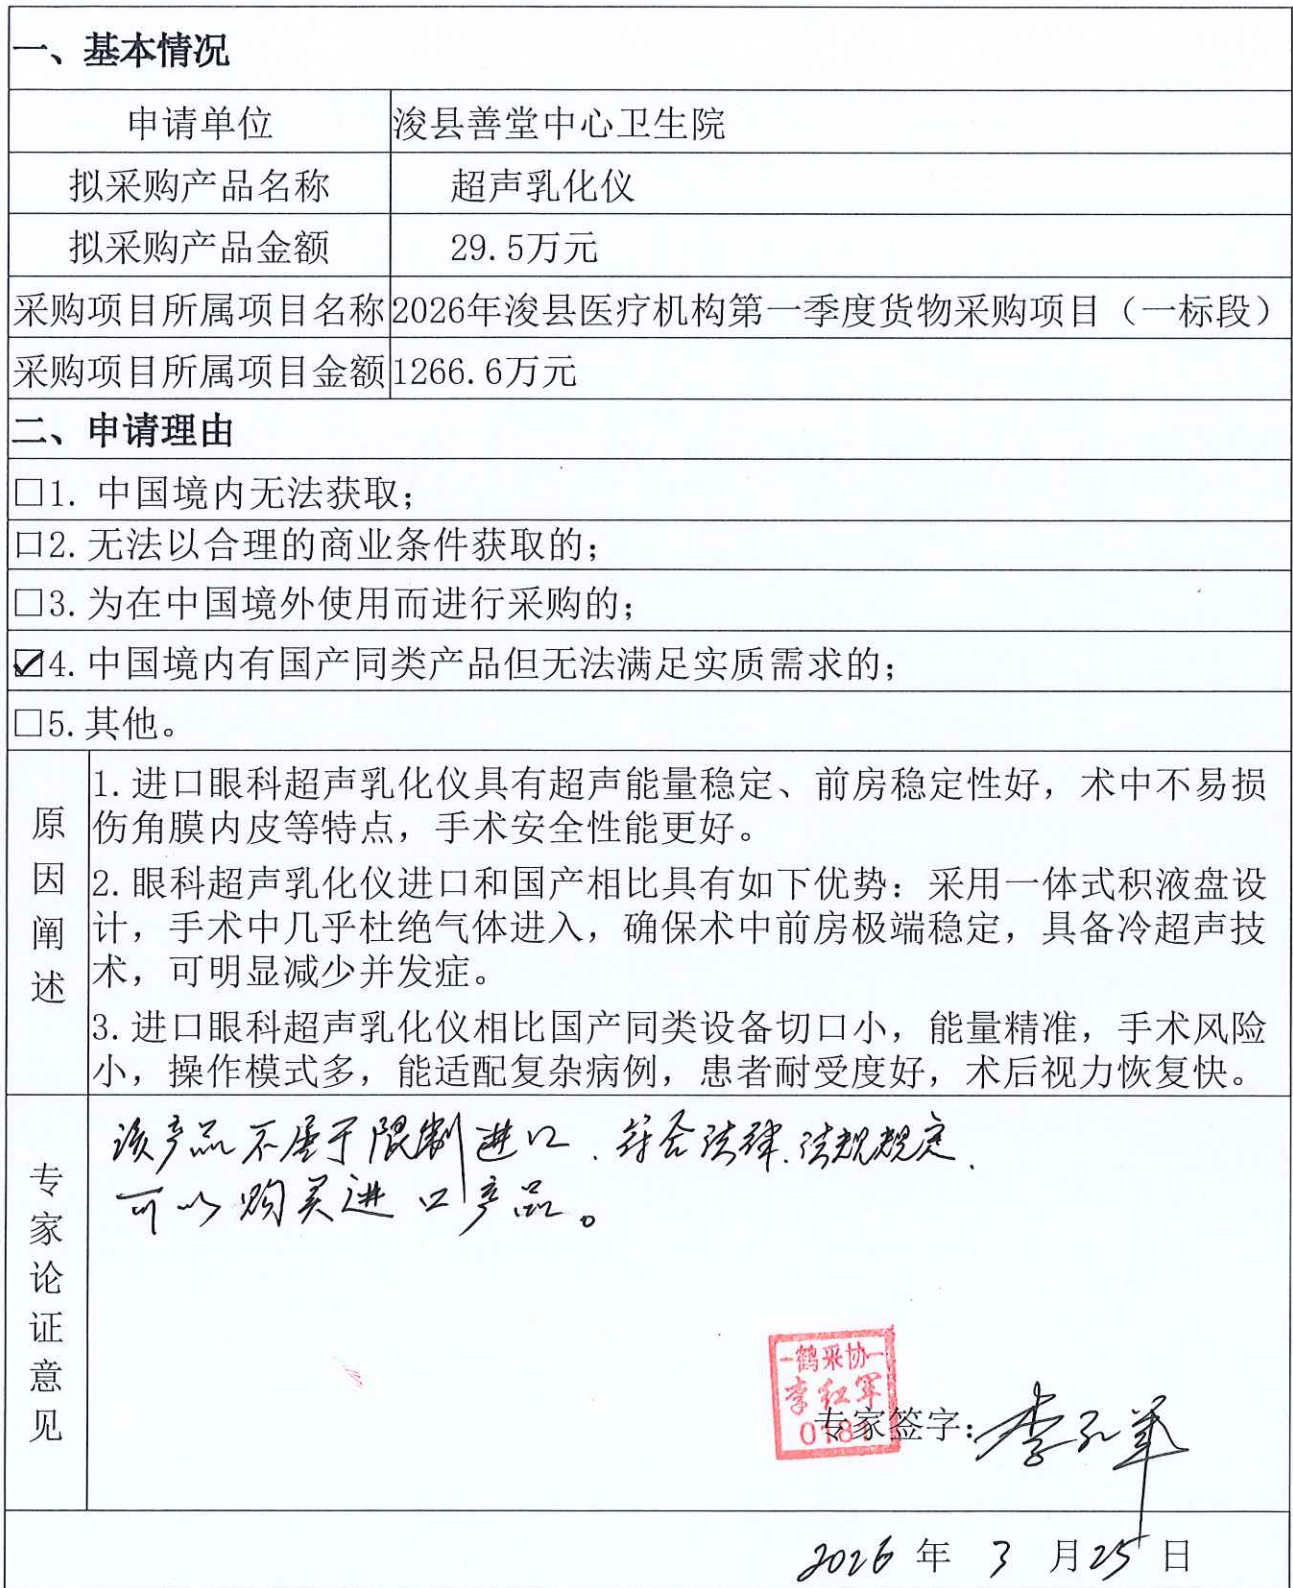 一、基本情况
申请单位 浚县善堂中心卫生院
拟采购产品名称 超声乳化仪
拟采购产品金额 29.5万元
采购项目所属项目名称 2026年浚县医疗机构第一季度货物采购项目（一标段）
采购项目所属项目金额 1266.6万元
二、申请理由
□1. 中国境内无法获取；
口2.无法以合理的商业条件获取的；
□3.为在中国境外使用而进行采购的；
☑4.中国境内有国产同类产品但无法满足实质需求的；
□5.其他。
原因阐述
1.进口眼科超声乳化仪具有超声能量稳定、前房稳定性好，术中不易损
伤角膜内皮等特点，手术安全性能更好。
2.眼科超声乳化仪进口和国产相比具有如下优势：采用一体式积液盘设
计，手术中几乎杜绝气体进入，确保术中前房极端稳定，具备冷超声技
术，可明显减少并发症。
3.进口眼科超声乳化仪相比国产同类设备切口小，能量精准，手术风险
小，操作模式多，能适配复杂病例，患者耐受度好，术后视力恢复快。
专家论证意见
该产品不属于限制进口、符合法律、法规规定、
可以购买进口产品。
鹤采协
李红军
0181
专家签字：李红军
2026 年 3 月 25 日